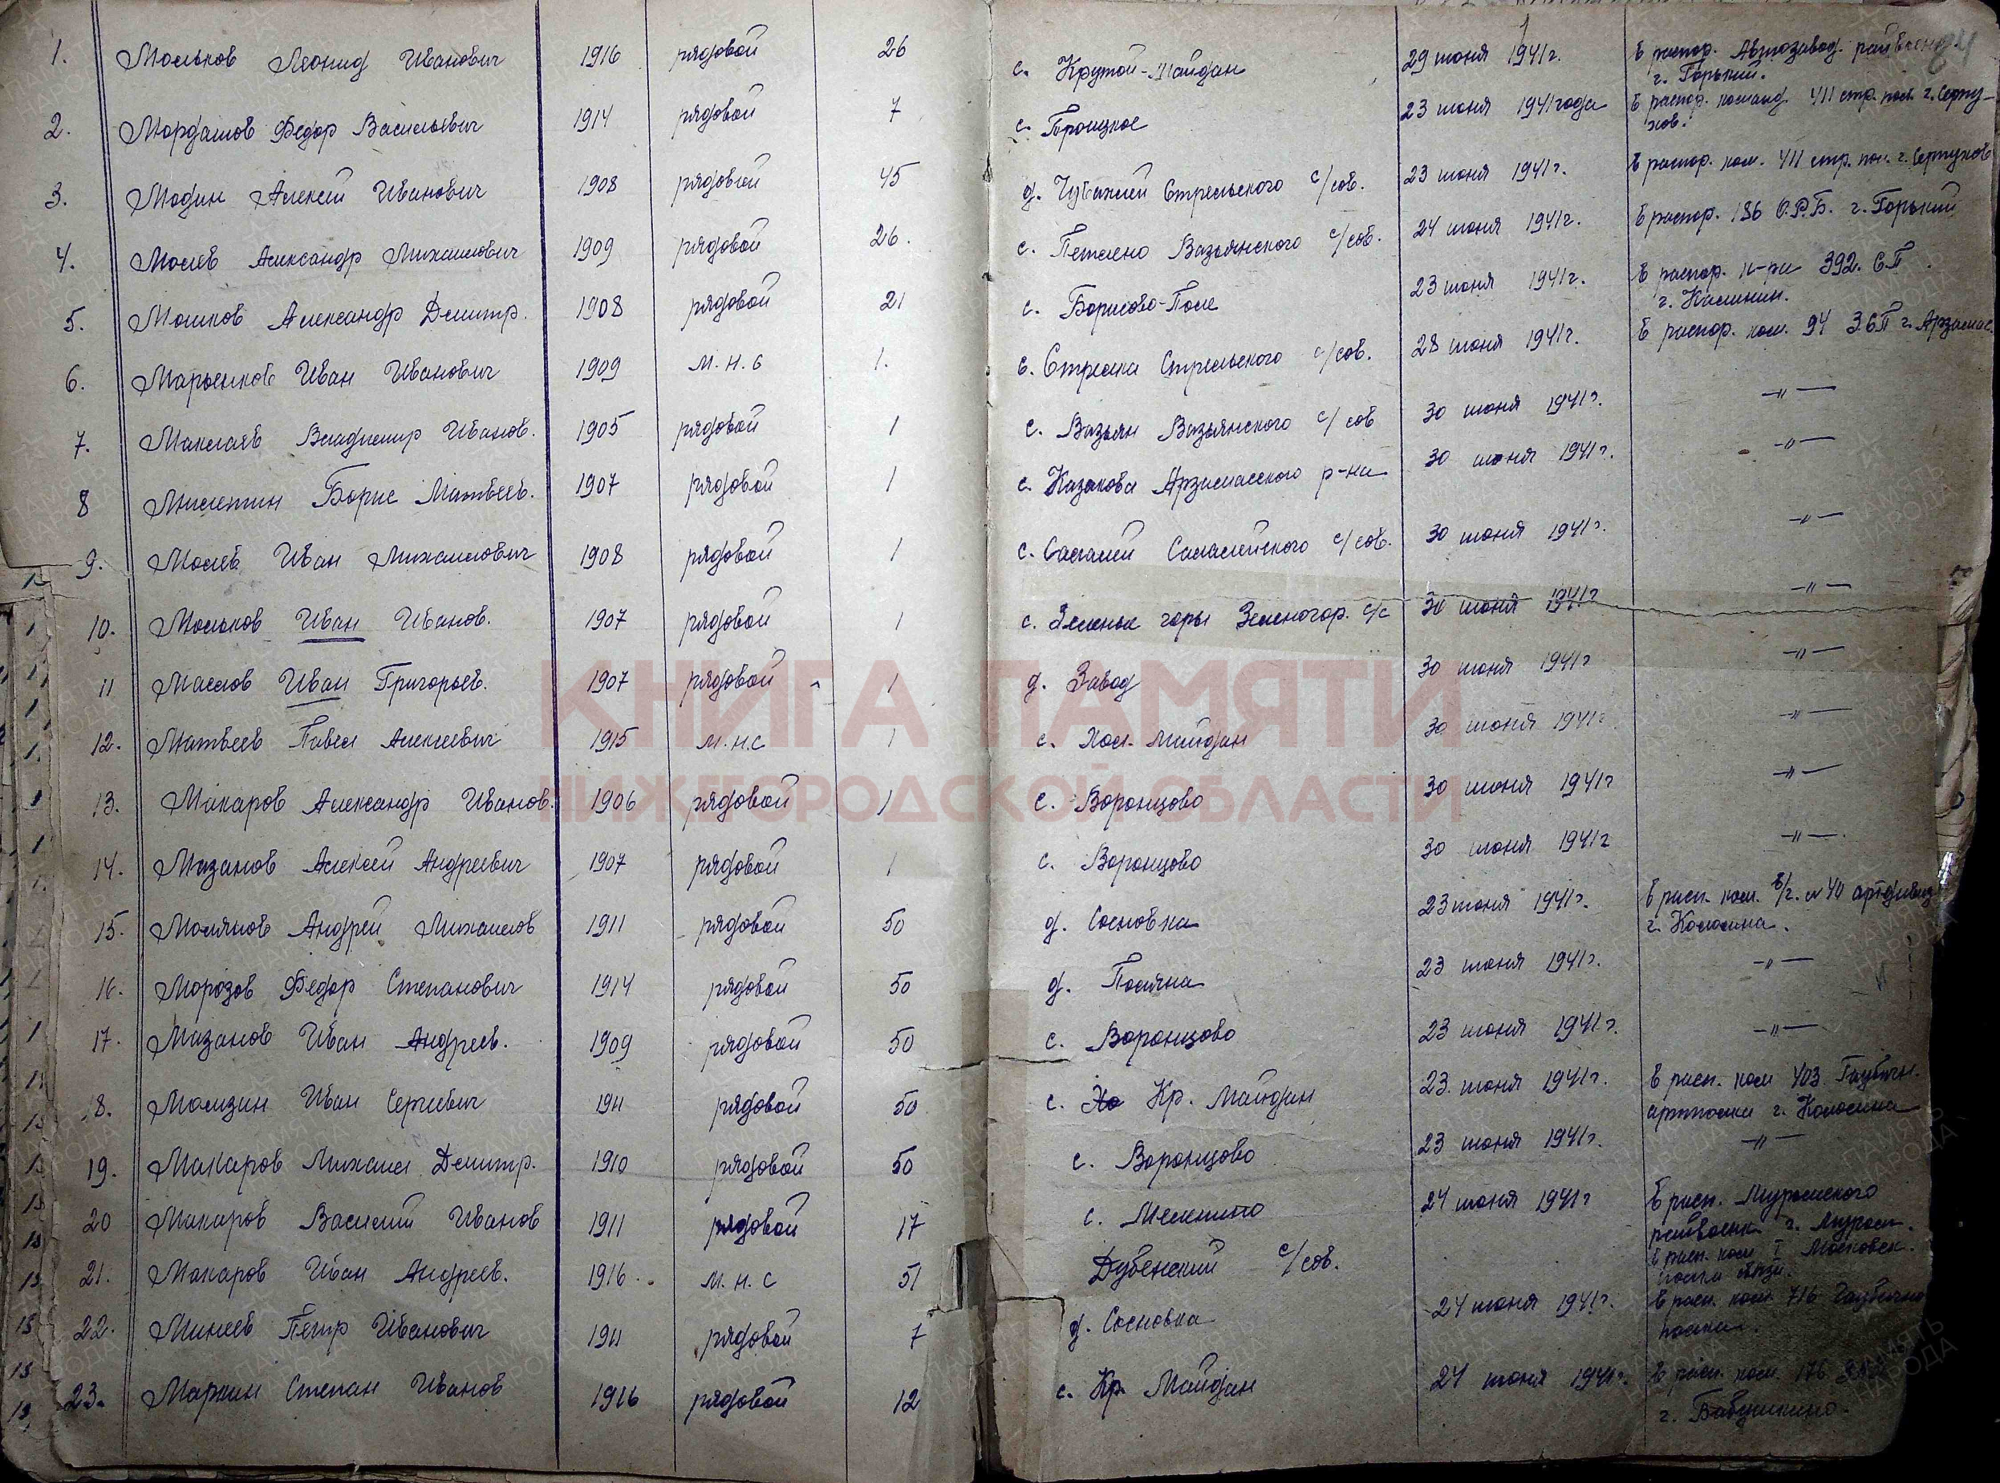 1. Мольков Леонид Иванович 1916 рядовой 26 с. Крутой-Майдан 29 июня 1941г. В распор. Автозавод. райвоенк.
г. Горький.
2. Мордашов Федор Васильевич 1914 рядовой 7 с. Троицкое 23 июня 1941года В распор. команд 411 стр. пол. г. Серпу-
хов.
3. Модин Алексей Иванович 1908 рядовой 45 д. Стрельского с/сов. 23 июня 1941г. В распор. ком. 411 стр. пол. г. Серпухов
4. Молев Александр Михайлович 1909 рядовой 26. с. Петлено Вазьянского с/сов. 24 июня 1941г. В распор. 186 О.Р.Б. г. Горький
5. Мошков Александр Дмитр. 1908 рядовой 21 с. Борисово-Поле 23 июня 1941г. В распор. к-ра 392. СП
г. Калинин.
6. Марьенков Иван Иванович 1909 м.н.с 1. с. Стрелка Стрельского с/сов. 28 июня 1941г. В распор. ком. 94 ЗСП г. Арзамас.
7. Маклаев Владимир Иванов. 1905 рядовой 1 с. Вазьян Вазьянского с/сов 30 июня 1941г. —"—
8 Милетин Борис Матвеев. 1907 рядовой 1 с. Казаково Арзамасского р-на 30 июня 1941г. —"—
9. Молев Иван Михайлович 1908 рядовой 1 с. Салалей Салалейского с/сов. 30 июня 1941г. —"—
10. Мольков Иван Иванов. 1907 рядовой 1 с. Зеленые горы Зеленогор. с/с 30 июня 1941г —"—
11 Маслов Иван Григорьев. 1907 рядовой 1 д. Завод 30 июня 1941г —"—
12. Матвеев Павел Алексеевич 1915 м.н.с 1 с. Хол. Майдан 30 июня 1941г. —"—
13. Макаров Александр Иванов. 1906 рядовой 1 с. Воронцово 30 июня 1941г —"—
14. Мазанов Алексей Андреевич 1907 рядовой 1 с. Воронцово 30 июня 1941г —"—
15. Молянов Андрей Михайлов 1911 рядовой 50 д. Сосновка 23 июня 1941г. В расп. ком. в/г. 40 артдивиз
г. Коломна.
16. Морозов Федор Степанович 1914 рядовой 50 д. Поляна 23 июня 1941г. —"—
17. Мазанов Иван Андреев. 1909 рядовой 50 с. Воронцово 23 июня 1941г. —"—
8. Мализин Иван Сергеевич 1911 рядовой 50 с. Кр. Майдан 23 июня 1941г. В расп. ком 403 Гаубичн.
артполка г. Коломна
19. Макаров Михаил Дмитр. 1910 рядовой 50 с. Воронцово 23 июня 1941г. —"—
20 Макаров Василий Иванов 1911 рядовой 17 с. 24 июня 1941г В расп. Муромского
райвоенк г. Муром.
21. Макаров Иван Андреев. 1916. м.н.с 51 Дубенский с/сов. В расп. ком I Московск.
полка связи.
22. Минеев Петр Иванович 1911 рядовой 7 д. Сосновка 24 июня 1941г. В расп. ком. 716 Гаубично
полка.
23. Маркин Степан Иванов 1916 рядовой 12 с. Кр. Майдан 24 июня 1941г. В расп. ком. 176
г. Бабушкино.
КНИГА ПАМЯТИ
НИЖЕГОРОДСКОЙ ОБЛАСТИ